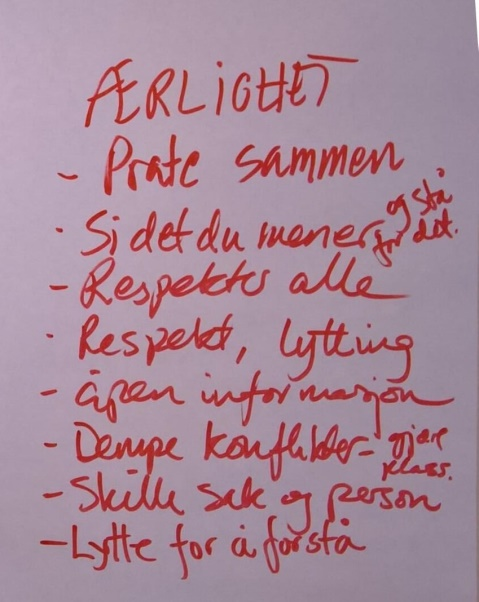 ÆRLIGHET
- Prate sammen
- Si det du mener og stå for det.
- Respekter alle
- Respekt, lytting
- åpen informasjon
- Dempe konflikter - gjøre
- Skille sak og person
- Lytte for å forstå